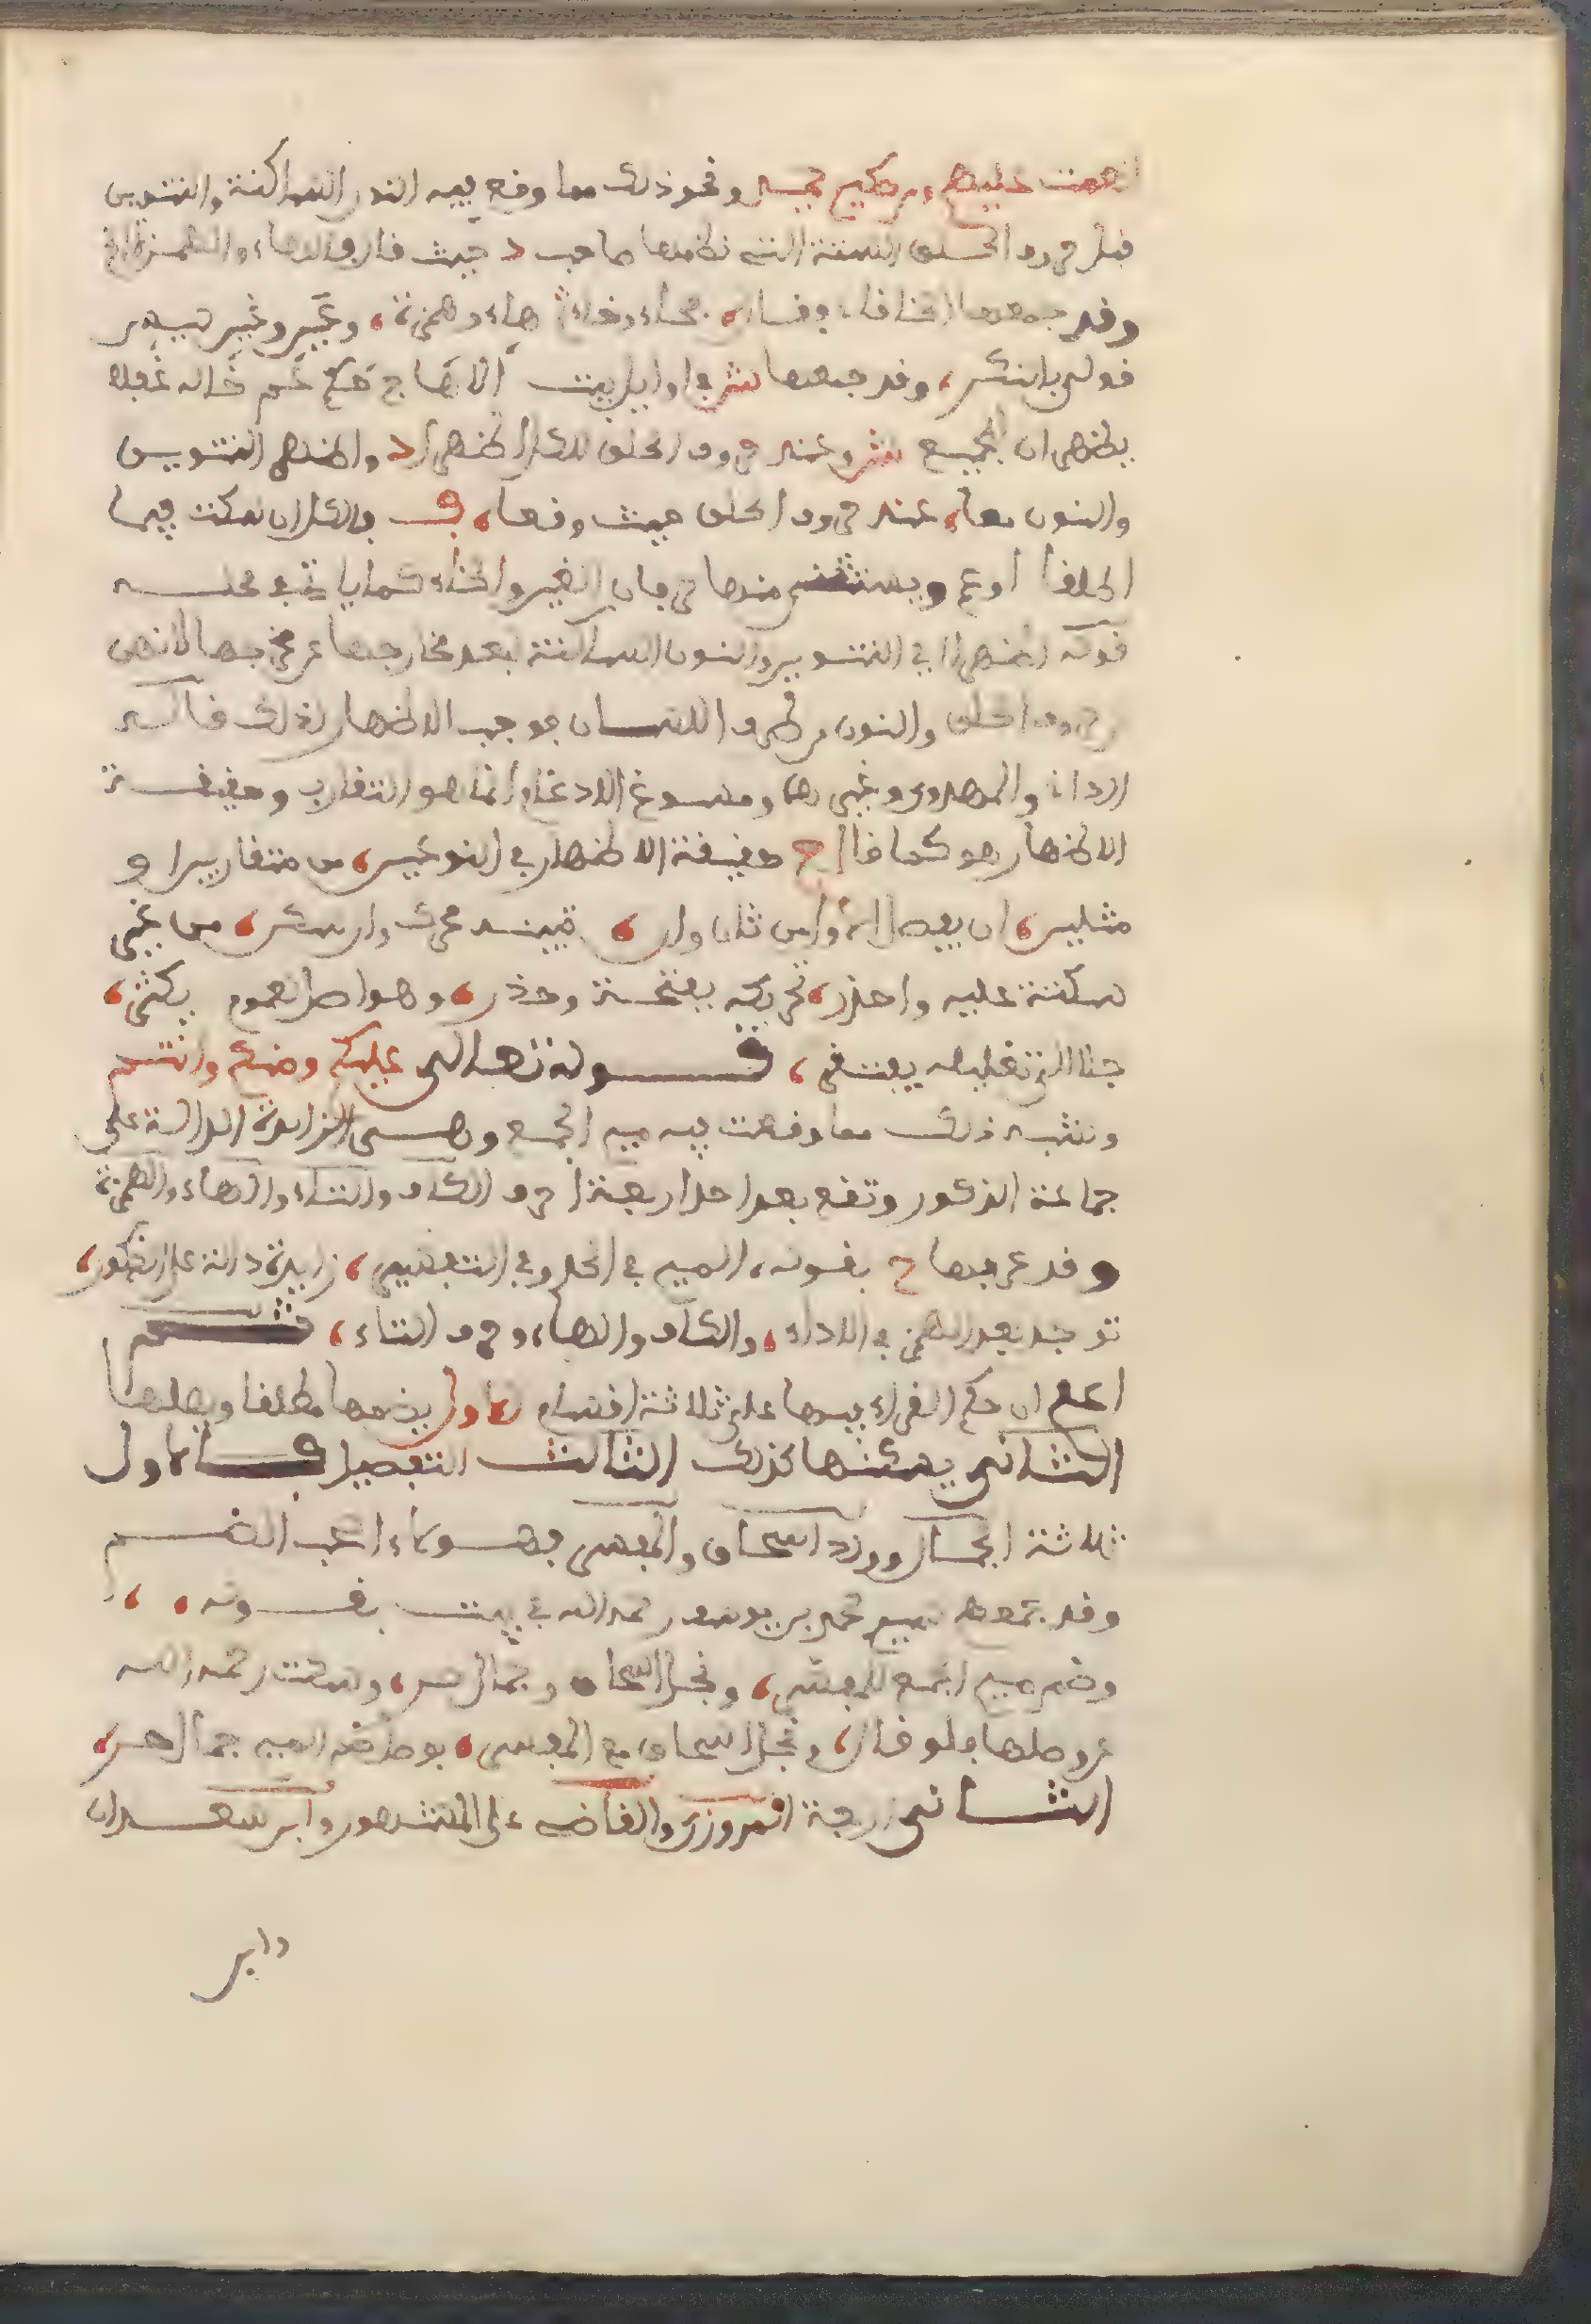 انعمت عليهم ومن حكيم حميد ونحو ذلك مما وقع فيه النون الساكنة والتنوين
قبل حروف الحلق الستة التي نظمها صاحب د حيث قال والهاء والهمزة
وقد جمعها وقال بحاء وخاء ثم هاء وهمزة، وعين وغين ليس
قولي بانكر، وقد جمعها ش في اوايل بيت الا هاج حكم عم خاليه غفلا
يظهر ان الجميع ش وعند حروف الحلق للكل اظهرا د واظهر التنوين
والنون معا، عند حروف الحلق حيث وقعا، والكل ان سكنت فيها
ويستثنى منها الغين والخاء كما ياتي في محله
قوله اظهرا في التنوين والنون الساكنة لبعد مخارجها عن مخرجها لانهن
حروف الحلق والنون من طرف اللسان فوجب الاظهار لذلك قاله
الداني والمهدوي وغيرهما ومسوغ الادغام انما هو التقارب وحقيقة
الاظهار هو كما قال ح حقيقة الاظهار في النوعين، من متقاربين او
مثلين، ان يفصل الاول من ثان وان، محرك وان سكن، من غير
سكتة عليه واحذر، تحريكه بفتحة وحذر، وهو اصل نعم يكثر،
جنا التي تعليله يفتقر، قوله تعالى عليكم ومنكم وانتم
وشبه ذلك مما وقعت فيه ميم الجمع وهي الزايدة الدالة على
جماعة الذكور وتقع بعد احد اربعة احرف الكاف والتاء والهاء والهمزة
وقد عرفها ح بقوله، الميم في الحد وفي التفسير، زايدة دالة على الذكور،
توجد بعد الهمز في الاداء، والكاف والهاء وحرف التاء، ثم
اعلم ان حكم القراء فيها على ثلاثة اقسام الاول يضمها مطلقا ويصلها
الثاني يسكنها كذلك الثالث التفصيل فالاول
ثلاثة الجمال وولد اسحاق والمفسر فهولاء اصحب الضم
وقد جمعهم محمد بن يوسف رحمه الله في بيت بقوله،
وضم ميم الجمع للمفسر، ونجل اسحاق وجمال، وسكت رحمه الله
عن وصلها فلو قال، ونجل اسحاق مع المفسر، بوصل ضم الميم جمال،
الثاني اربعة المروزي والقاضي على المشهور وابن سعدان
وابن